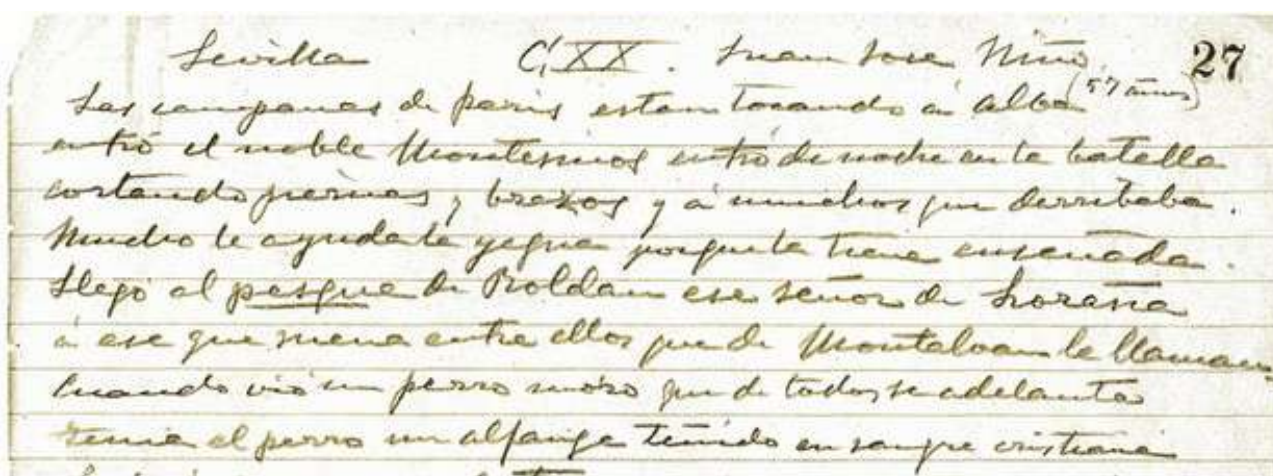 Sevilla C, XX. Juan José Niño 27
(57 años)
Las campanas de paris estan tocando á alba
entró el noble Montesinos entró de noche en la batalla
cortando piernas y brazos y á muchos que derribaba.
Mucho le ayuda la yegua porque la tiene enseñada.
Llegó al pesgue de Roldan ese señor de Loraña
á ese que suena entre ellos que de Montalvan le llaman
Cuando vió un perro moro que de todos se adelanta
tenia el perro un alfange teñido en sangre cristiana